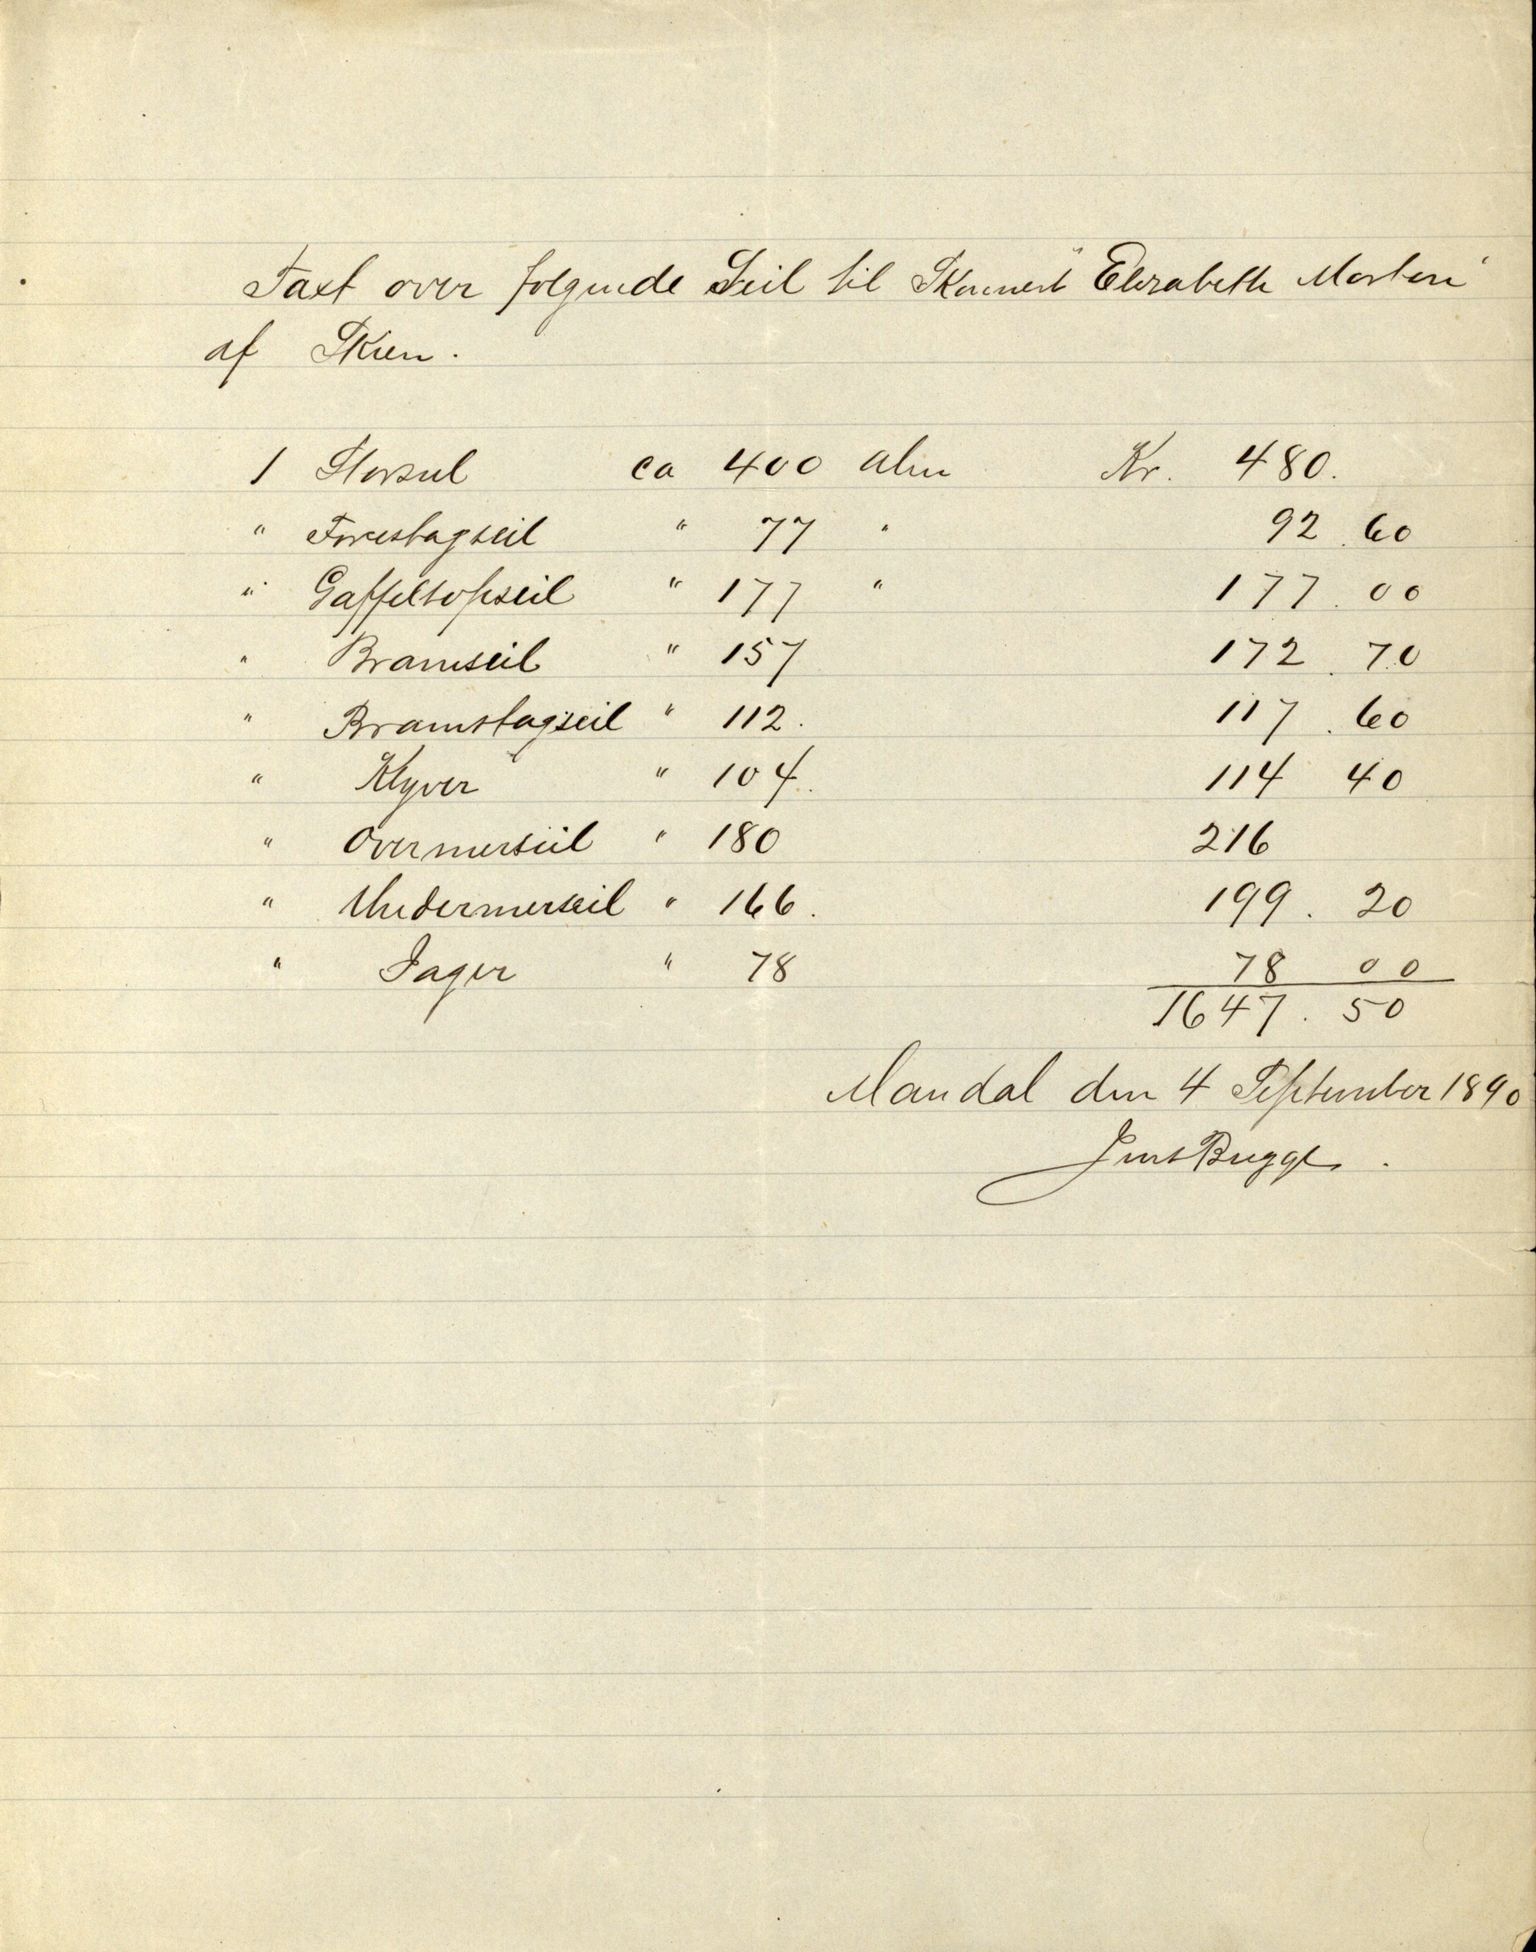 Taxt over følgende Seil til Skonnert "Elisabeth Morten"
af Skien.
1 Storseil ca 400 alen Kr. 480.
" Forestagseil " 77 " 92.60
" Gaffeltopseil " 177 " 177.00
" Bramseil " 157 172.70
" Bramstagseil " 112. 117.60
" Klyver " 104. 114 40
" Overmerseil " 180 216
" Undermerseil " 166. 199. 20
" Jager " 78 78 00
1647. 50
Mandal den 4 September 1890
Jens Bugge.